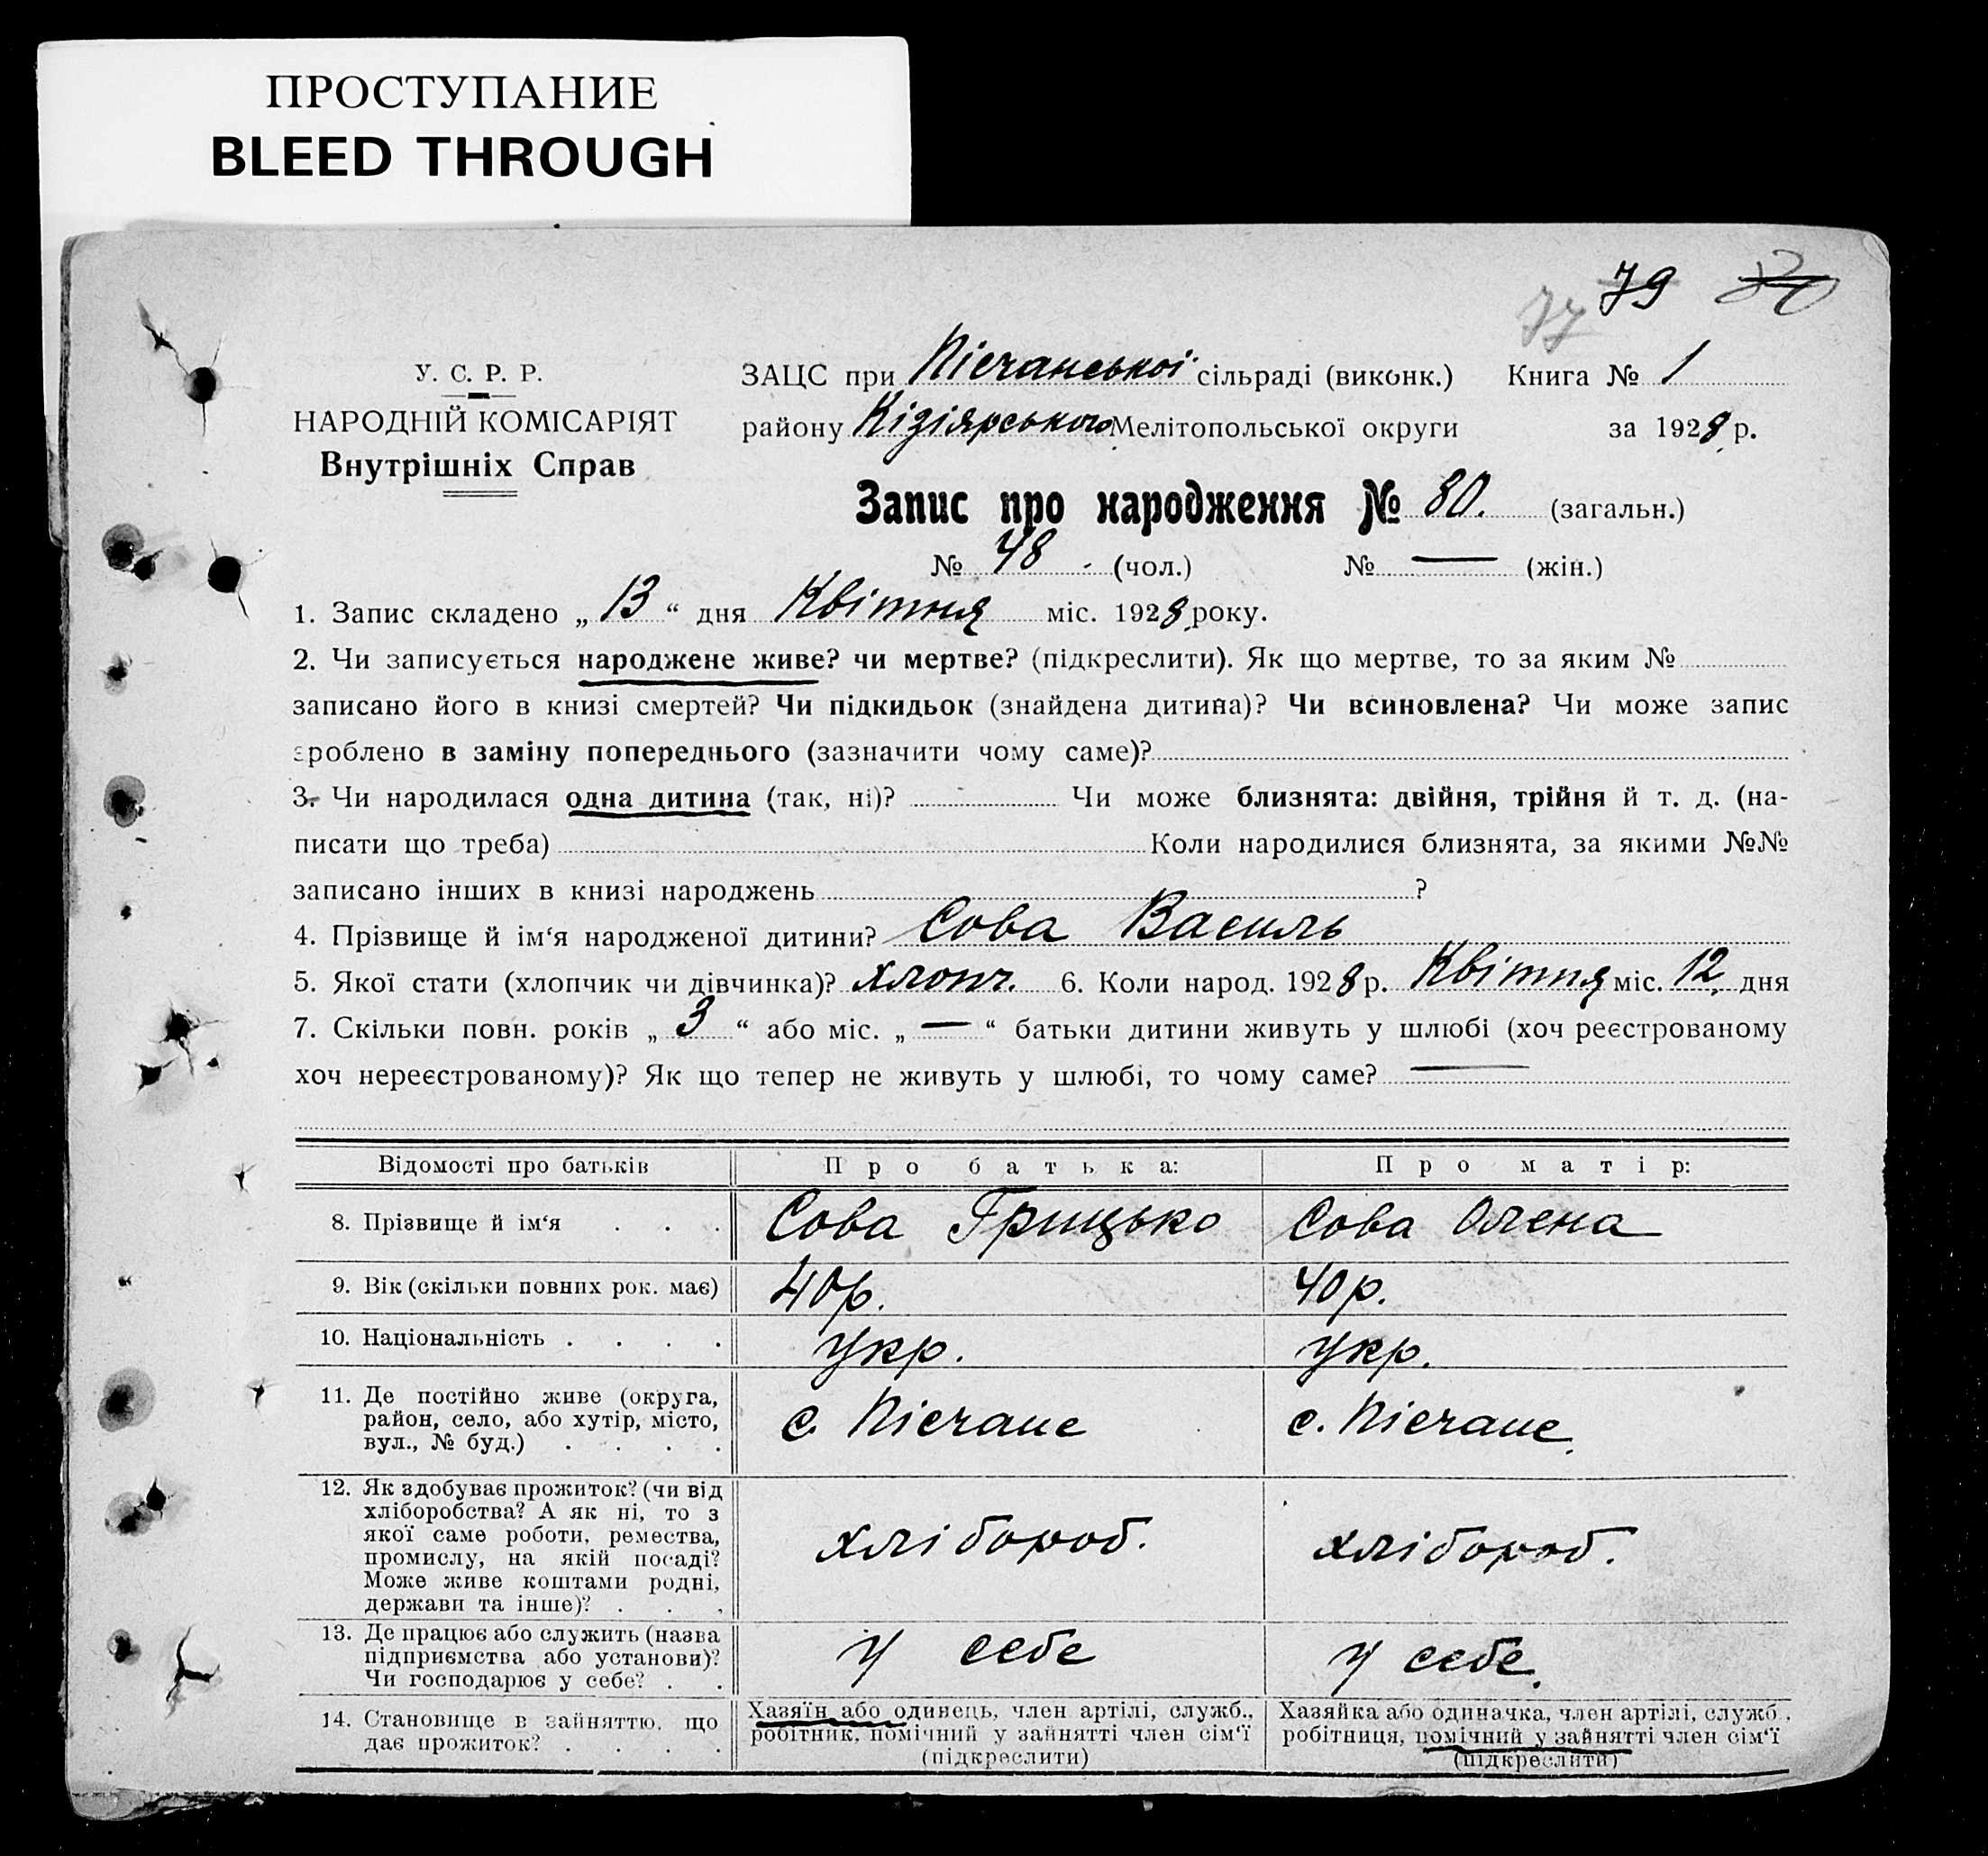 ПРОСТУПАНИЕ
BLEED THROUGH
77 79
У. С. Р. Р.
НАРОДНІЙ КОМІСАРІЯТ
Внутрішніх Справ
ЗАЦС при Пісчанської сільраді (виконк.) Книга № 1
району Кізіярського Мелітопольської округи за 1928 р.
Запис про народження № 80. (загальн.)
№ 48 (чол.) № — (жін.)
1. Запис складено „ 13 “ дня Квітня міс. 1928 року.
2. Чи записується народжене живе? чи мертве? (підкреслити). Як що мертве, то за яким №
записано його в книзі смертей? Чи підкидьок (знайдена дитина)? Чи всиновлена? Чи може запис
зроблено в заміну попереднього (зазначити чому саме)?
3. Чи народилася одна дитина (так, ні)? Чи може близнята: двійня, трійня й т. д. (на-
писати що треба) Коли народилися близнята, за якими №№
записано інших в книзі народжень ?
4. Прізвище й ім‘я народженої дитини? Сова Василь
5. Якої стати (хлопчик чи дівчинка)? хлопч. 6. Коли народ. 1928 р. Квітня міс. 12 дня
7. Скільки повн. років „ 3 “ або міс. „ — “ батьки дитини живуть у шлюбі (хоч реєстрованому
хоч нереєстрованому)? Як що тепер не живуть у шлюбі, то чому саме? —
Відомості про батьків Про батька: Про матір:
8. Прізвище й ім‘я . . . Сова Грицько Сова Олена
9. Вік (скільки повних рок. має) 40 р. 40 р.
10. Національність . . . . укр. укр.
11. Де постійно живе (округа,
район, село, або хутір, місто,
вул., № буд.) . . . .
с. Пісчане с. Пісчане.
12. Як здобуває прожиток? (чи від
хліборобства? А як ні, то з
якої саме роботи, ремества,
промислу, на якій посаді?
Може живе коштами родні,
держави та інше)? . . .
хлібороб. хлібороб.
13. Де працює або служить (назва
підприємства або установи)?
Чи господарює у себе? . .
у себе у себе.
14. Становище в зайняттю, що
дає прожиток? . . . .
Хазяїн або одинець, член артілі, служб.,
робітник, помічний у зайнятті член сім‘ї
(підкреслити)
Хазяйка або одиначка, член артілі, служб.,
робітниця, помічний у зайнятті член сім‘ї
(підкреслити)